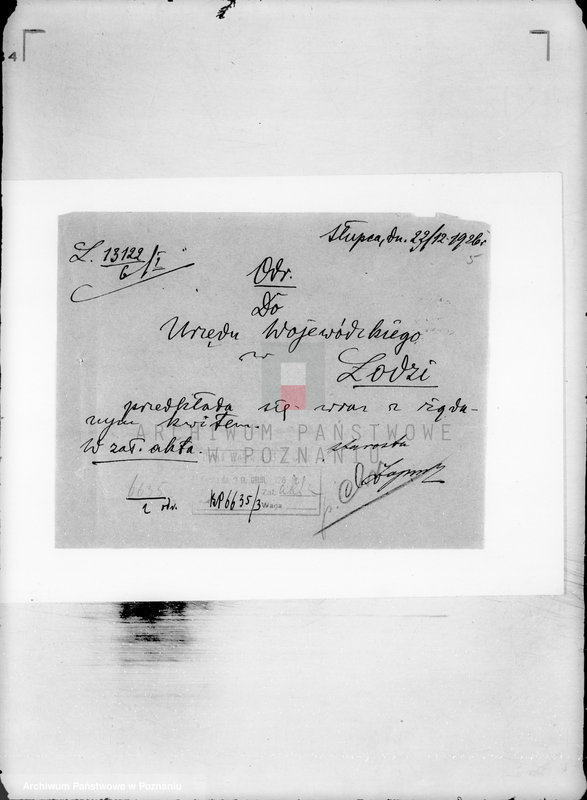 Słupca, dn. 22/12 1926 r
5
L. 13122/6/I
Odr.
Do
Urzędu Wojewódzkiego
w
Łodzi
przedkłada się wraz z żąda-
nym kwitem.
W zał. akta.
Starosta
6635
1 odr.
KP6635/3
Zał.
Waga
ARCHIWUM PAŃSTWOWE
W POZNANIU
Archiwum Państwowe w Poznaniu